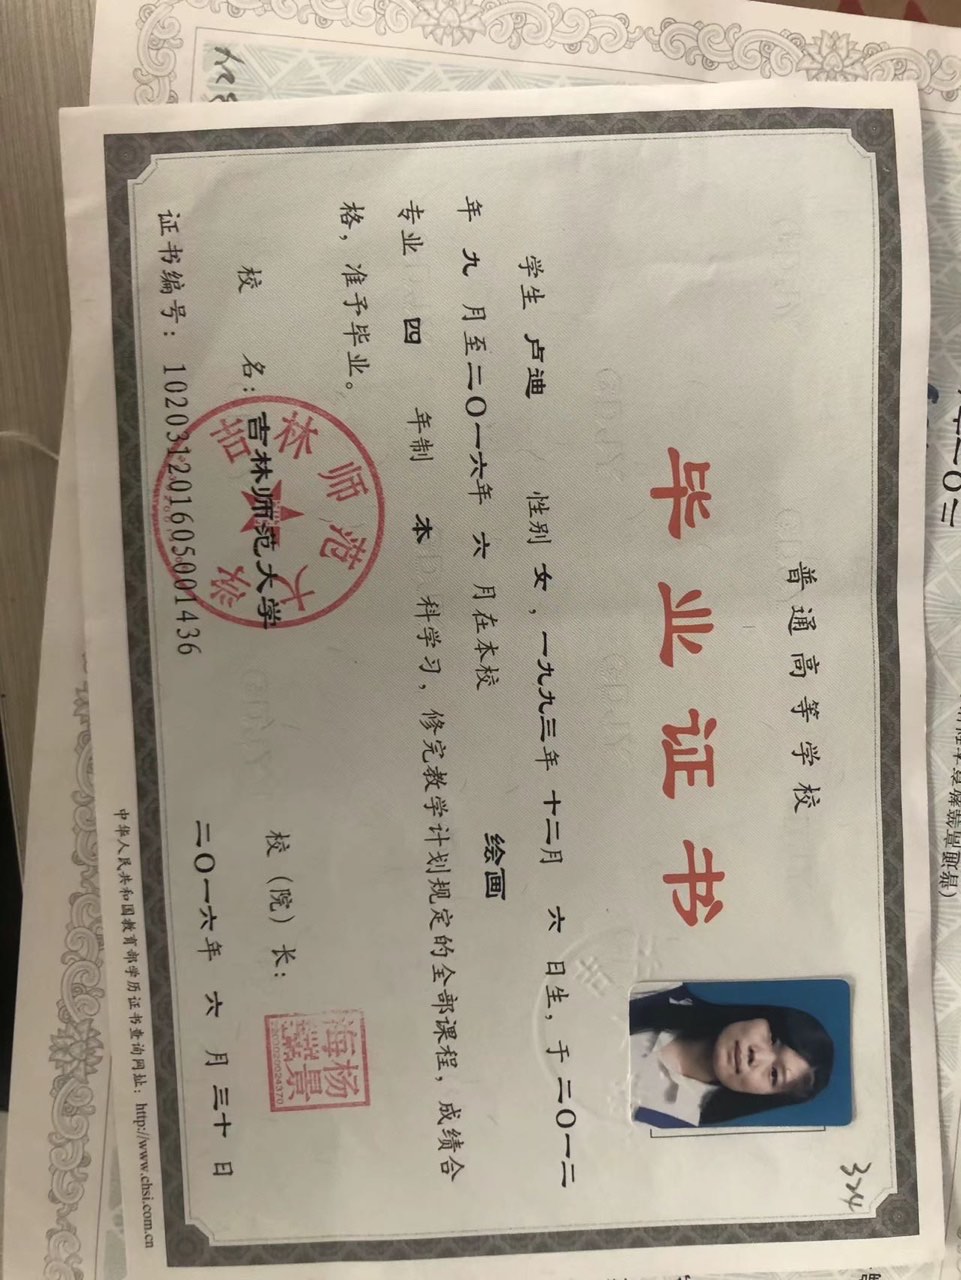 普通高等学校
毕业证书
324
学生 卢迪 性别 女，一九九三年 十二月 六 日生，于 二〇一二
年 九 月至二〇一六年 六 月在本校 绘画
专业 四 年制 本 科学习，修完教学计划规定的全部课程，成绩合
格，准予毕业。
校 名：吉林师范大学
吉林师范大学
校（院）长：
杨景海
二〇一六年 六 月 三十 日
证书编号：102031201605001436
中华人民共和国教育部学历证书查询网址：http://www.chsi.com.cn